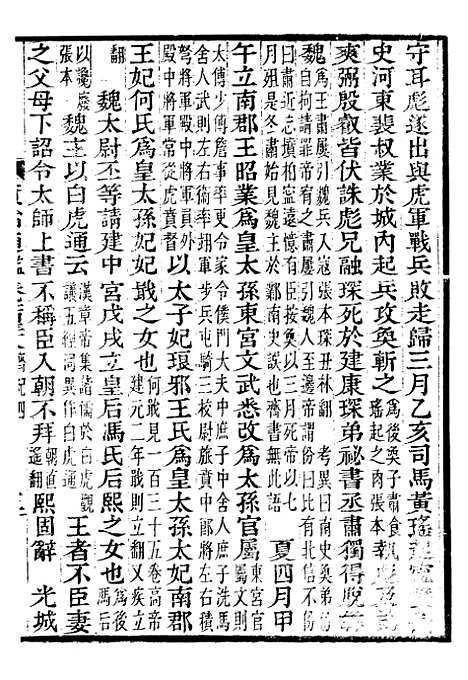 守耳彪遂出與虎軍戰兵敗走歸三月乙亥司馬黃瑤起寧蠻
史河東裴叔業於城内起兵攻奐斬之爲後奐子肅瑤起之肉張本執彪及弟
爽弼殷叡皆伏誅彪兄融琛死於建康琛弟祕書丞肅獨得脫奔
魏爲王肅屢引魏兵入寇張本琛丑林翻考異曰南史奐弟罪帝宥之肅屢引魏人至邊帝謂份曰比有北信不份
曰肅近忘墳柏寧遠憶有臣帝亡以三月死帝以七月殂是冬肅始見魏主於鄴南史說也齊書無此語 夏四月甲
午立南郡王昭業爲皇太孫東宮文武悉改爲太孫官屬東宮官屬文則
太傅少傅詹事率更令家令僕門大夫中庶子中舍人庶子洗馬舍人武則左右衞率翊軍步兵屯騎三校尉旅賁中郎將左右積
弩將軍殿中將軍員外殿中將軍常從虎賁督以太子妃琅邪王氏爲皇太孫太妃南郡
王妃何氏爲皇太孫妃妃戢之女也何戢見一百三十五卷高帝建元二年戢則立翻又疾立
翻 魏太尉丕等請建中宮戊戌立皇后馮氏后熙之女也爲後馮后
以讒廢張本 魏主以白虎通云漢章帝集諸儒於白虎觀議五經同異作白虎通王者不臣妻
之父母下詔令太師上書不稱臣入朝不拜朝直遙翻熙固辭 光城